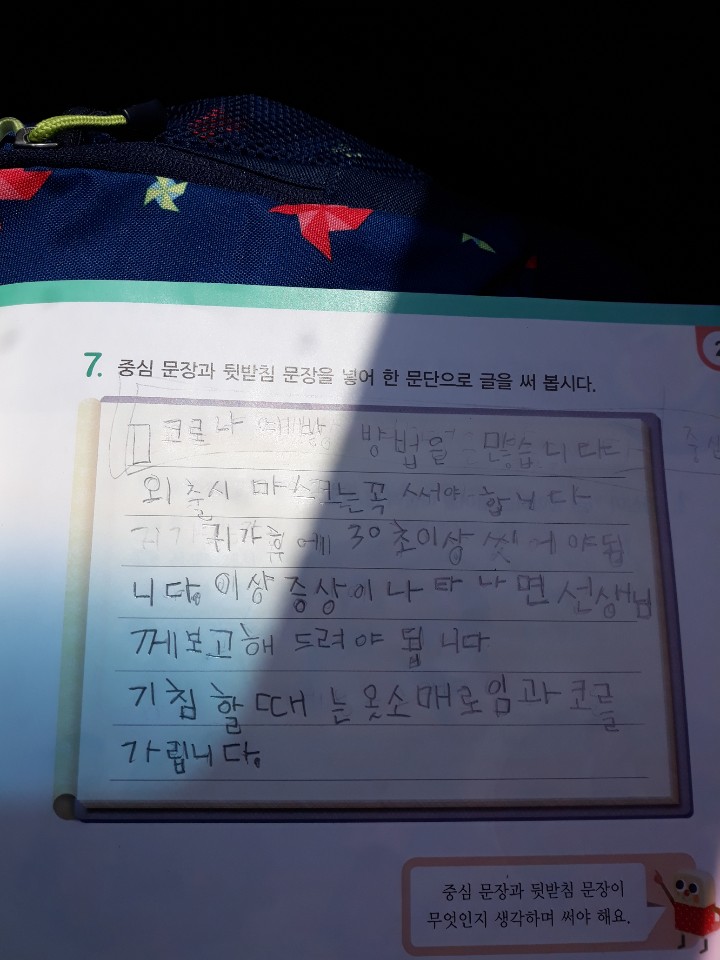 7. 중심 문장과 뒷받침 문장을 넣어 한 문단으로 글을 써 봅시다.
코로나 예방 방법을 많습니다
외출시 마스크는꼭 써야 합니다
귀가후에 30초이상 씻어야됩
니다. 이상 증상이 나타나면 선생님
께보고해 드려야 됩니다
기침 할 때는 옷소매로입과 코를
가립니다.
중심 문장과 뒷받침 문장이
무엇인지 생각하며 써야 해요.